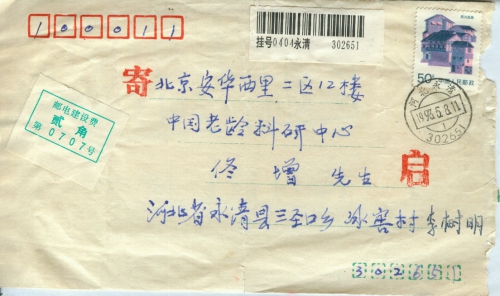 100011
挂号0404永清 302651
50分 中国人民邮政
邮电建设费
贰角
第0707号
寄
北京安华西里二区12楼
中国老龄科研中心
佟增 先生
启
河北永清
1993.5.8.11
302651
河北省永清县三圣口乡 冰窖村 李树明
302651